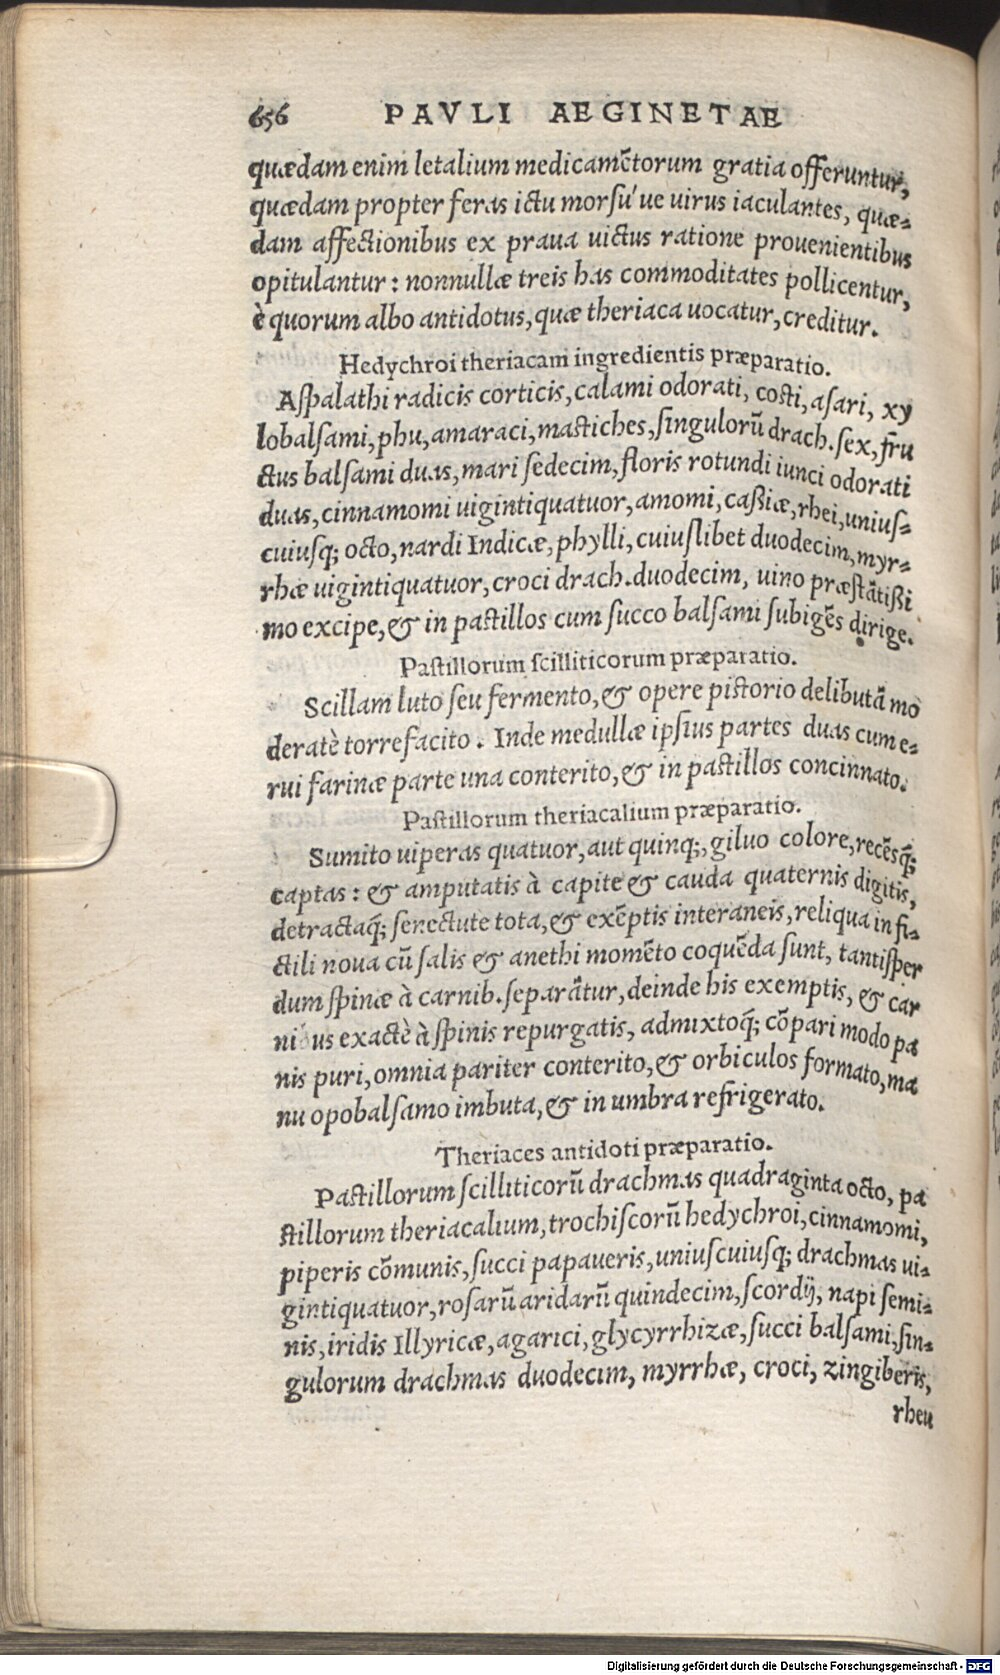 656 PAVLI AEGINETAE
quædam enim letalium medicamẽtorum gratia offeruntur,
quædam propter feras ictu morsu´ue uirus iaculantes, quæ-
dam affectionibus ex praua uictus ratione prouenientibus
opitulantur: nonnullæ treis has commoditates pollicentur,
è quorum albo antidotus, quæ theriaca uocatur, creditur.
Hedychroi theriacam ingredientis præparatio.
Aſpalathi radicis corticis, calami odorati, costi, aſari, xy
lobalſami, phu, amaraci, mastiches, ſingulorũ drach. ſex, fru
ctus balſami duas, mari ſedecim, floris rotundi iunci odorati
duas, cinnamomi uigintiquatuor, amomi, caßiæ, rhei, uniuſ-
cuiuſq; octo, nardi Indicæ, phylli, cuiuſlibet duodecim, myr-
rhæ uigintiquatuor, croci drach. duodecim, uino præſtãtißi
mo excipe, & in pastillos cum ſucco balſami ſubigẽs dirige.
Paſtillorum ſcilliticorum præparatio.
Scillam luto ſeu fermento, & opere pistorio delibutã mo
deratè torrefacito. Inde medullæ ipſius partes duas cum e-
rui farinæ parte una conterito, & in pastillos concinnato.
Paſtillorum theriacalium præparatio.
Sumito uiperas quatuor, aut quinq;, giluo colore, recẽsq́;
captas: & amputatis à capite & cauda quaternis digitis,
detractaq́; ſenectute tota, & exẽptis interaneis, reliqua in fi-
ctili noua cũ ſalis & anethi momẽto coquẽda ſunt, tantiſper
dum ſpinæ à carnib. ſeparãtur, deinde his exemptis, & car
ni us exactè à ſpinis repurgatis, admixtoq́; cõpari modo pa
nis puri, omnia pariter conterito, & orbiculos formato, ma
nu opobalſamo imbuta, & in umbra refrigerato.
Theriaces antidoti præparatio.
Pastillorum ſcilliticorũ drachmas quadraginta octo, pa
stillorum theriacalium, trochiſcorũ hedychroi, cinnamomi,
piperis cõmunis, ſucci papaueris, uniuſcuiuſq; drachmas ui-
gintiquatuor, roſarũ aridarũ quindecim, ſcordij, napi ſemi-
nis, iridis Illyricæ, agarici, glycyrrhizæ, ſucci balſami, ſin-
gulorum drachmas duodecim, myrrhæ, croci, zingiberis,
rheu
Digitalisierung gefördert durch die Deutsche Forschungsgemeinschaft - DFG